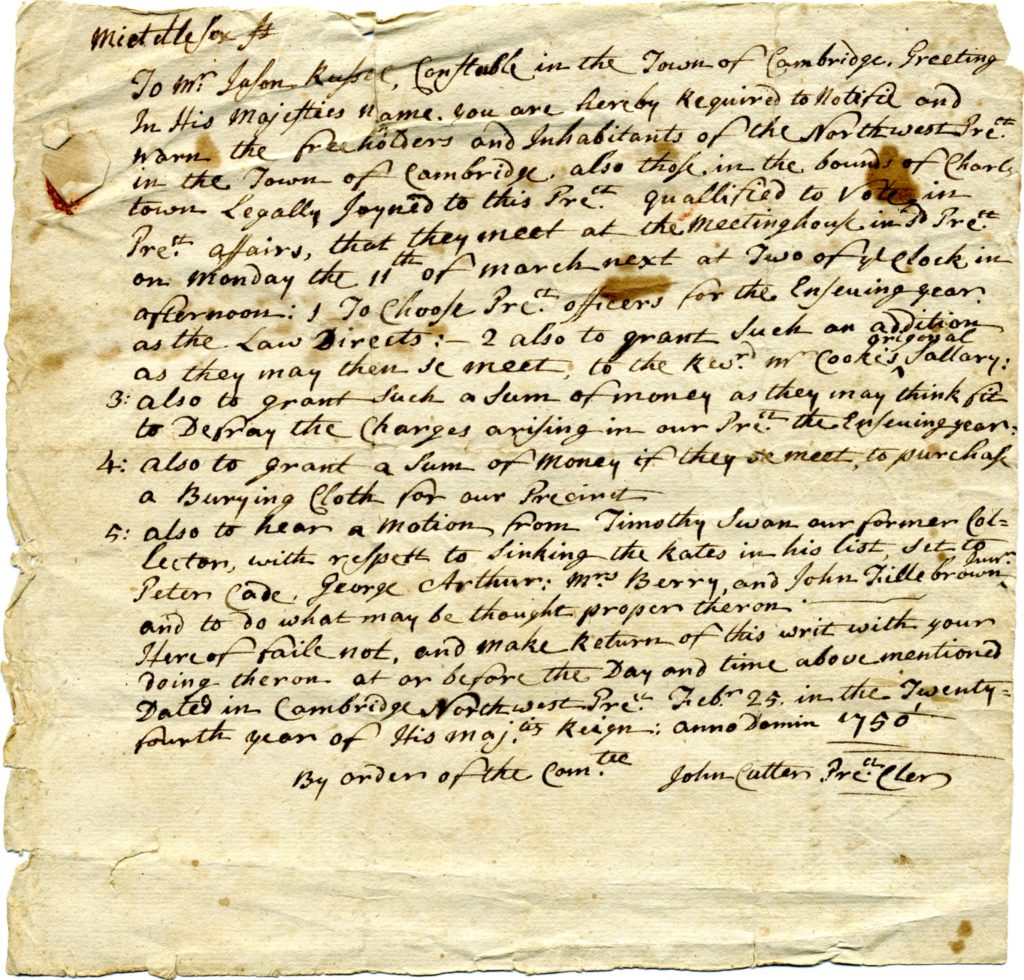 Middlesex ss
To Mr Jason Russel, Constable in the Town of Cambridge. Greeting
In His Majesties Name. you are hereby Required to Notifie and
warn the freeholders and Inhabitants of the Northwest Prect.
in the Town of Cambridge. also those in the bounds of Charls
town Legally Joyned to this Prect. quallified to Vote in
Prect. affairs, that they meet at the Meetinghouse in sd Prect.
on Monday the 11th of march next at Two of ye Clock in
afternoon: 1 To Choose Prect. officers for the Ensewing year.
as the Law Directs:- 2 also to grant Such an addition
as they may then se meet, to the Revrd mr Cooke's ^ original Sallary:
3: also to grant Such a Sum of money as they may think fit
to Defray the Charges arising in our Prect. the Ensewing year:
4: also to grant a Sum of Money if they se meet, to purchase
a Burying Cloth for our Precinct
5: also to hear a Motion from Timothy Swan our former Col=
lector, with respect to Sinking the Rates in his list, set to
Peter Cade, George Arthur: Mrs Berry, and John Fillebrown Junr.
and to do what may be thought proper theron
Hereof faile not, and make Return of this writ with your
doing theron at or before the Day and time above mentioned
Dated in Cambridge Northwest Prect. Febr 25. in the Twenty=
fourth year of His Majties Reign: anno Domin 1750
By order of the Comtee John Cutter Prect. Cler